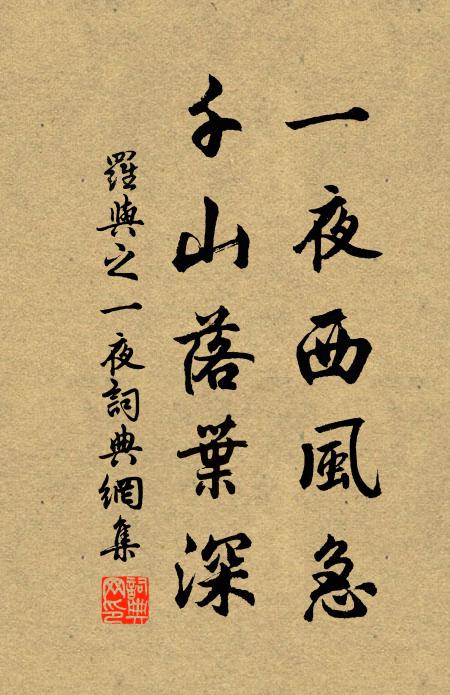 一夜西風急
千山落葉深
羅與之一夜詞典網集
詞典网印